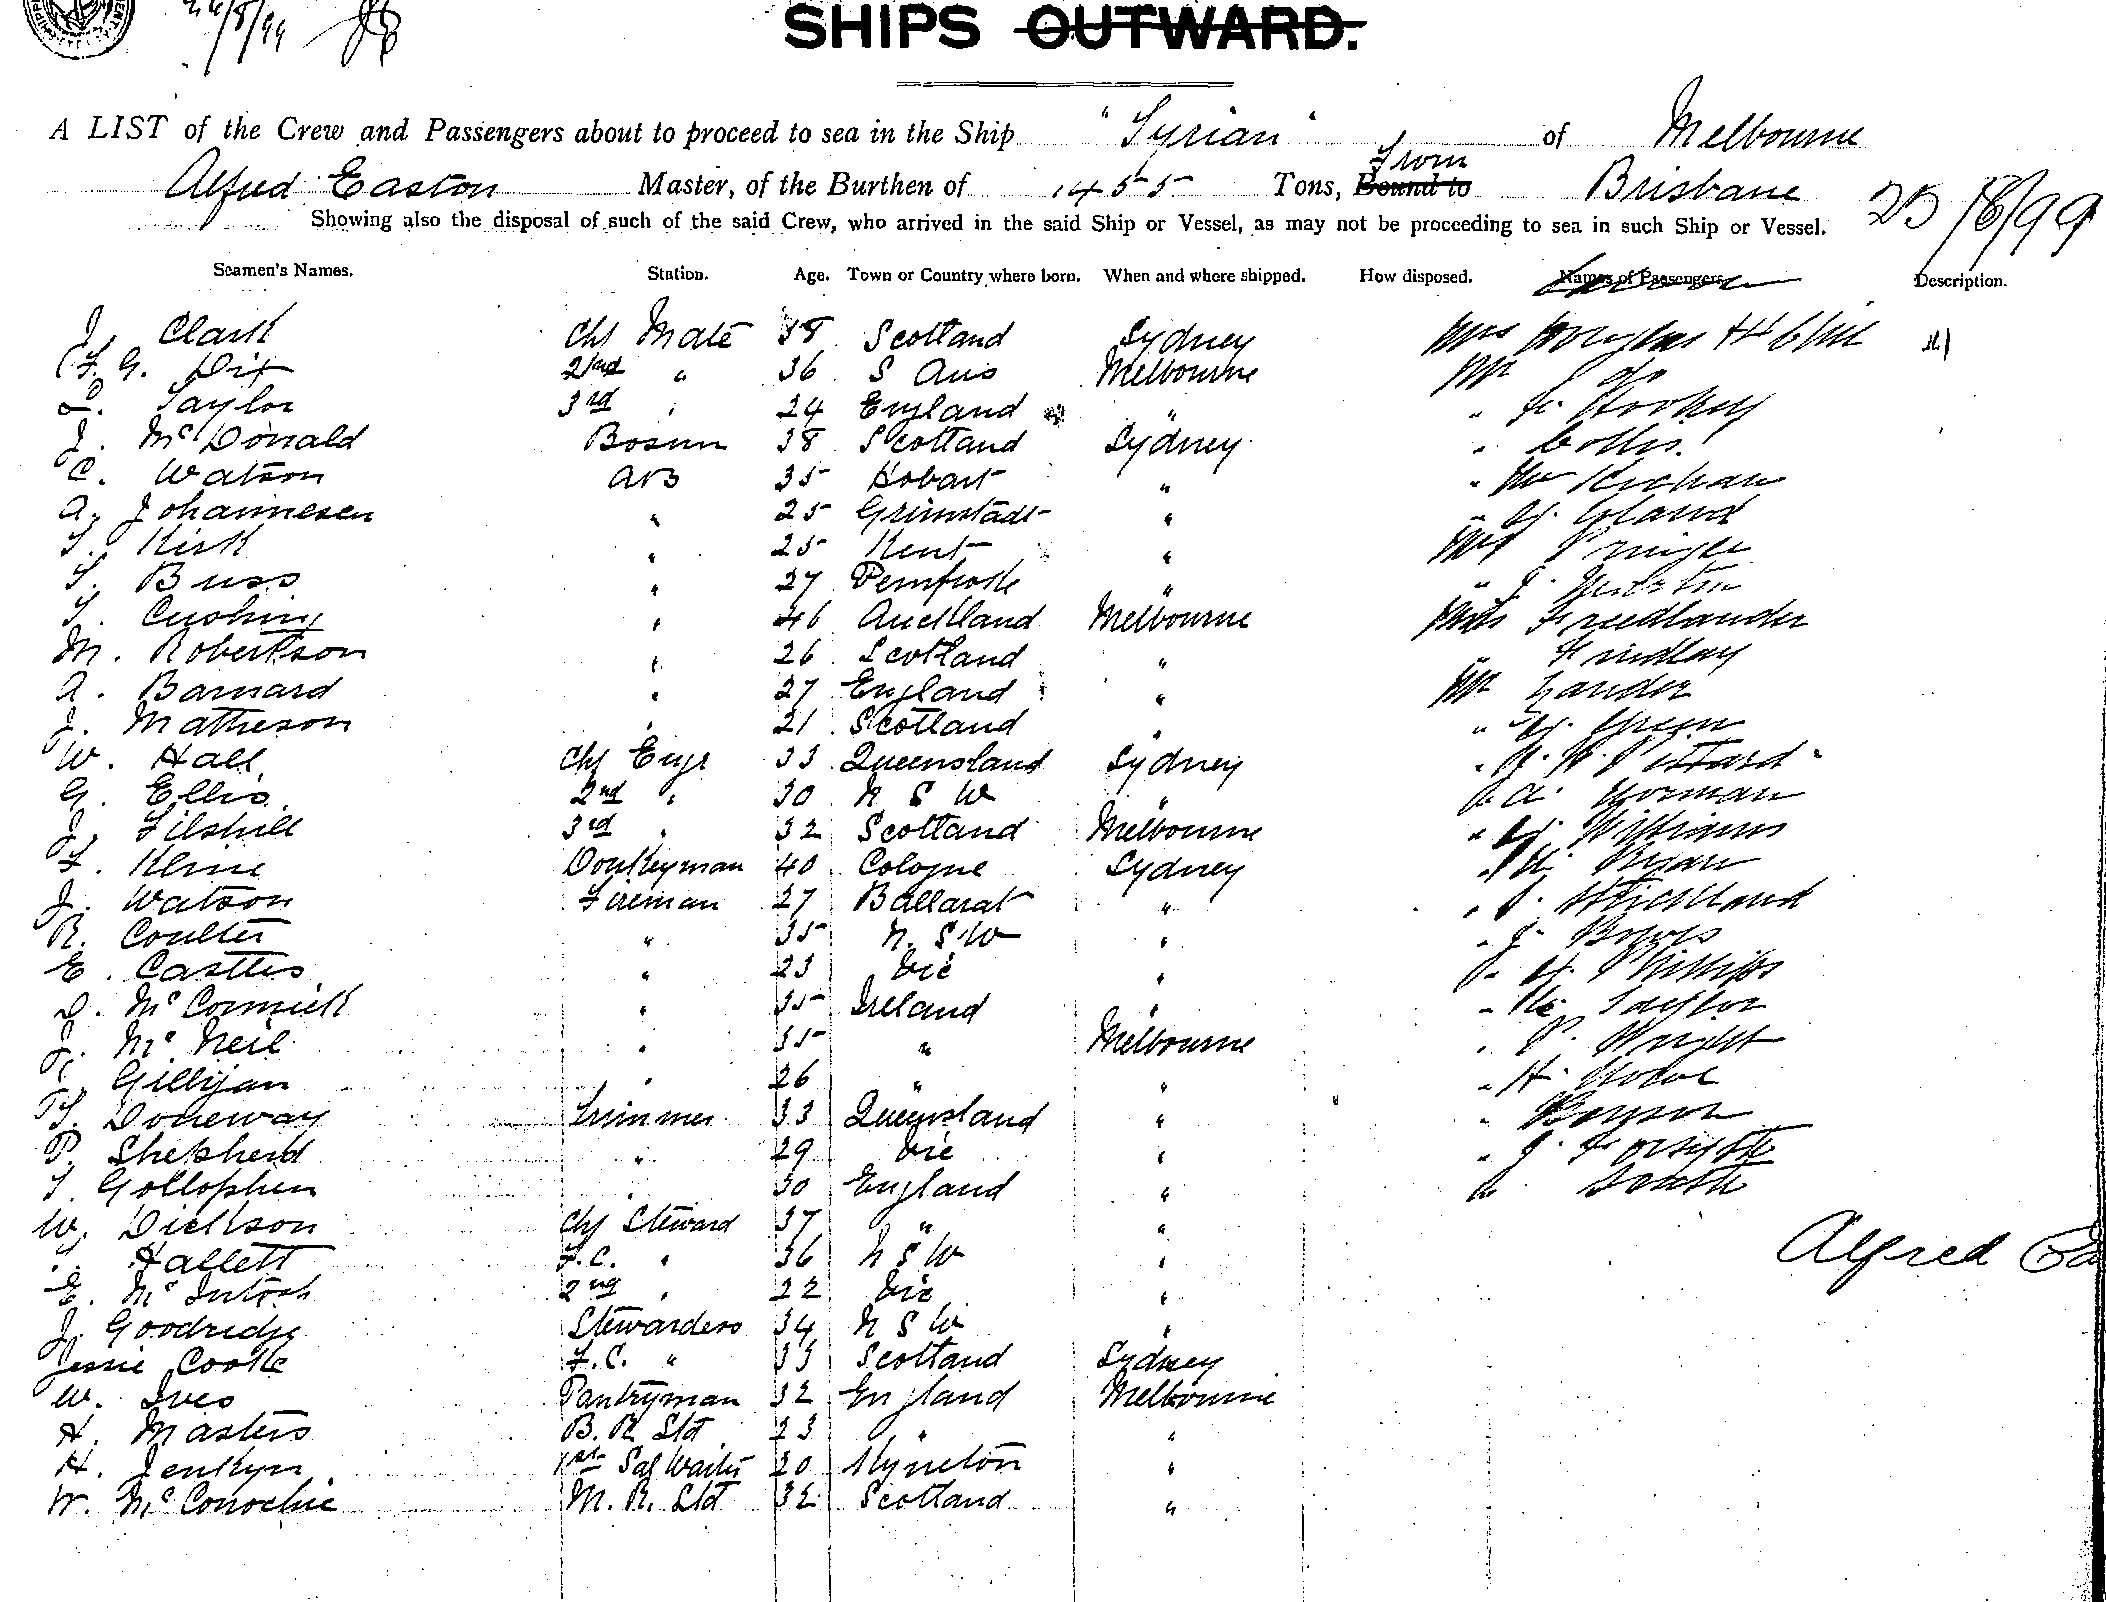 26/8/99
SHIPS OUTWARD.
A LIST of the Crew and Passengers about to proceed to sea in the Ship "Syrian" of Melbourne
Alfred Easton Master, of the Burthen of 1455 Tons, Bound to From Brisbane 25/8/99
Showing also the disposal of such of the said Crew, who arrived in the said Ship or Vessel, as may not be proceeding to sea in such Ship or Vessel.
Seamen's Names. Station. Age. Town or Country where born. When and where shipped. How disposed. Names of Passengers. Description.
J. Clark Chf Mate 38 Scotland Sydney Mrs Douglas
F. G. Dix 2nd " 36 S Aus Melbourne Mr
Taylor 3rd " 24 England "
J. McDonald Bosun 38 Scotland Sydney "
C. Watson AB 35 Hobart " "
A. Johannesen " 25 Grimstadt "
T. Kirk " 25 Kent "
T. Buss " 27 Pembroke "
T. Cushing " 46 Auckland Melbourne Freedlander
M. Robertson " 26 Scotland " " Findlay
A. Barnard " 27 England " Mr Lander
J. Matheson " 21 Scotland " " Green
W. Hall Chf Engr 33 Queensland Sydney
G. Ellis 2nd " 30 N S W " A. Norman
J. Filshill 3rd " 32 Scotland Melbourne " Williams
F. Kline Donkeyman 40 Cologne Sydney " Ryan
J. Watson Fireman 27 Ballarat " " Strickland
R. Coulter " 35 N. S. W "
E. Casttles " 23 Vic " Phillips
D. McCormick " 35 Ireland " " Taylor
J. McNeil " 35 " Melbourne " Wright
Gilligan " 26 " " " H.
T. Doneway Trimmer 33 Queensland " "
P. Shepherd " 29 Vic " " J. Forsythe
T. Gollophen " 30 England "
W. Dickson Chf Steward 37 " "
T. Hallett F.C. " 36 N S W " Alfred Ea
E. McIntosh 2nd " 22 Vic "
J. Goodridge Stewardess 34 N S W "
Jessie Cooke F.C. " 33 Scotland Sydney
W. Ives Pantryman 32 England Melbourne
H. Masters B. R. Std 23 " "
H. Jenkyn 1st Sal Waiter 20 Kyneton "
W. McConochie M. R. Std 32 Scotland "